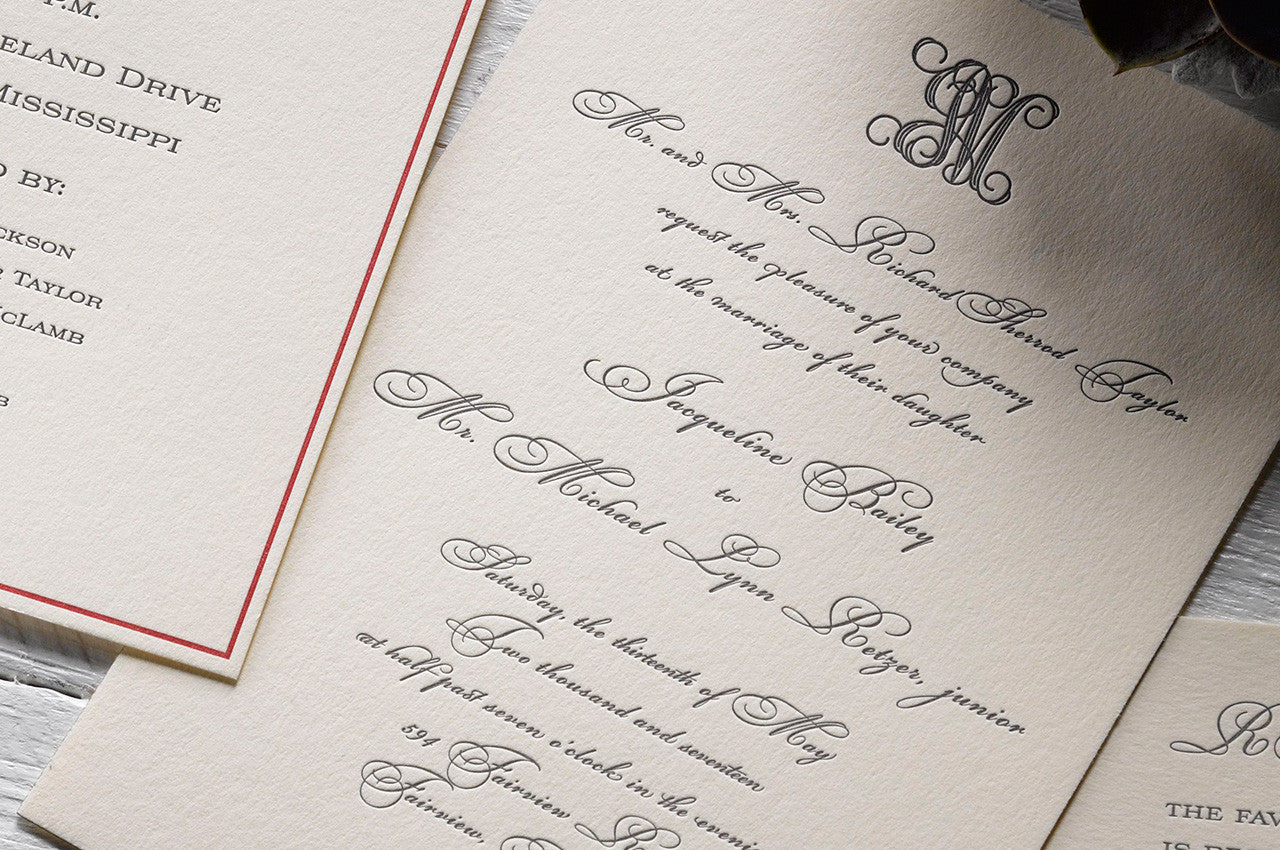 P.M.
ELAND DRIVE
MISSISSIPPI
BY:
CKSON
TAYLOR
CLAMB
Mr. and Mrs. Richard Sherrod Taylor
request the pleasure of your company
at the marriage of their daughter
Jacqueline Bailey
to
Mr. Michael Lynn Retzer, junior
Saturday, the thirteenth of May
Two thousand and seventeen
at half past seven o'clock in the evening
594 Fairview R
Fairview,
R
THE FAV